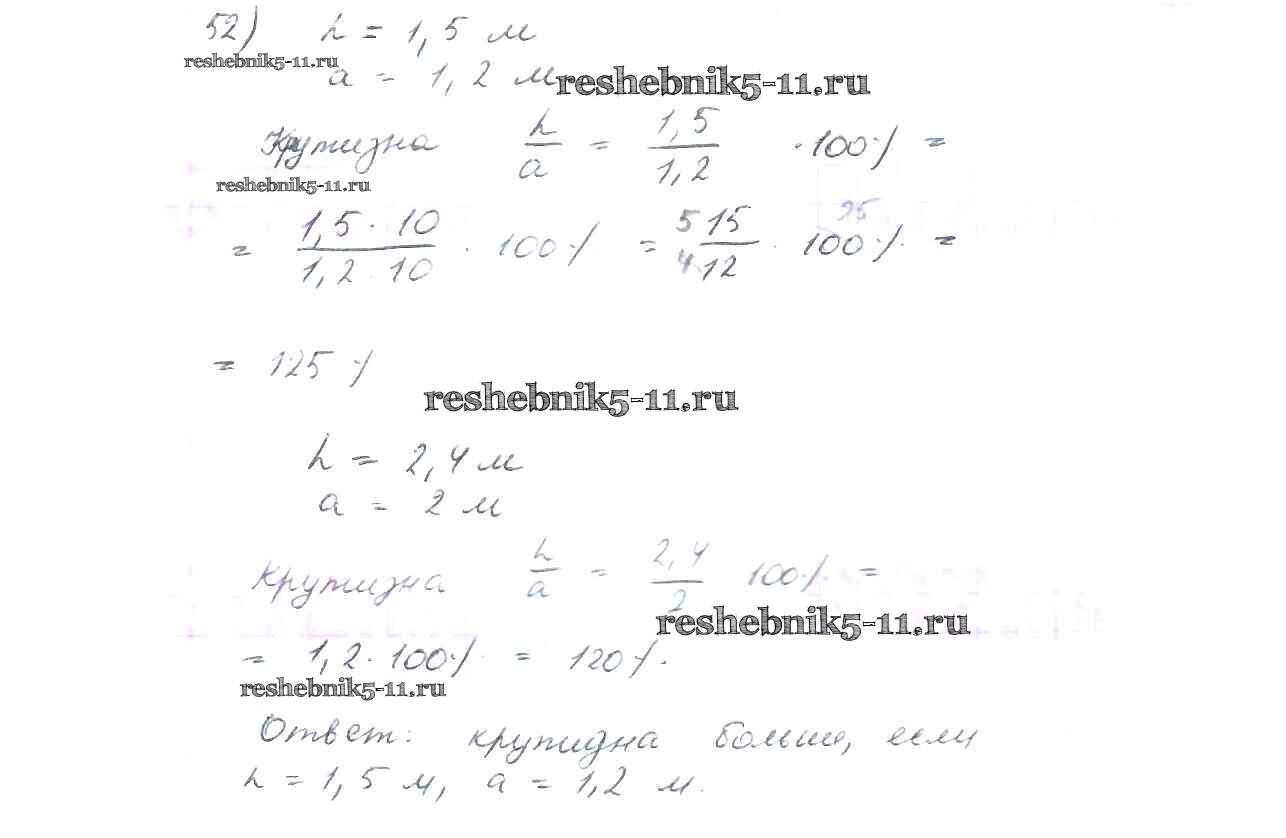 52) h = 1,5 м
reshebnik5-11.ru
a = 1,2 м
reshebnik5-11.ru
Крутизна h/a = 1,5/1,2 · 100% =
reshebnik5-11.ru
= 1,5 · 10/1,2 · 10 · 100% = 5 15/4 12 · 100% 25 =
= 125%
reshebnik5-11.ru
h = 2,4 м
a = 2 м
Крутизна h/a = 2,4/2 100% =
reshebnik5-11.ru
= 1,2 · 100% = 120%.
reshebnik5-11.ru
Ответ: крутизна больше, если
h = 1,5 м, a = 1,2 м.